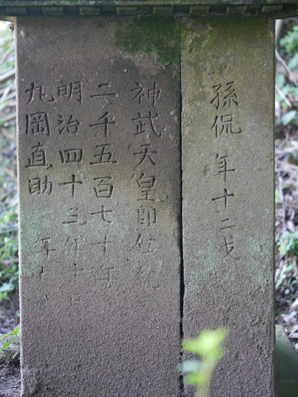 孫侃 年十二才
神武天皇即位紀
二千五百七十年
明治四十三年
九岡直助 年